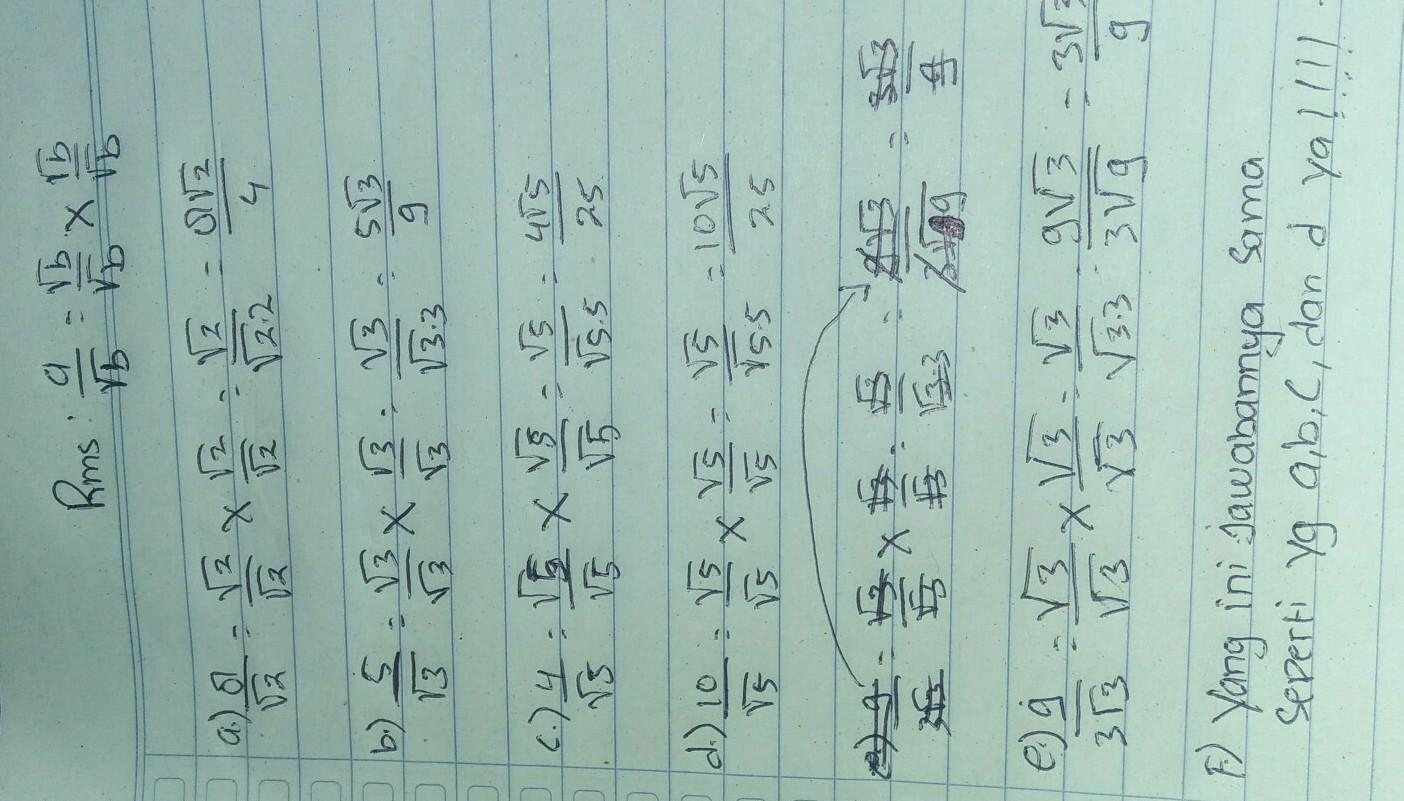 Rms : a/√b = √b/√b × √b/√b
a.) 8/√2 = √2/√2 × √2/√2 = √2/√2.2 = 8√2/4
b.) 5/√3 = √3/√3 × √3/√3 = √3/√3.3 = 5√3/9
c.) 4/√5 = √5/√5 × √5/√5 = √5/√5.5 = 4√5/25
d.) 10/√5 = √5/√5 × √5/√5 = √5/√5.5 = 10√5/25
e.) 9/3√3 = √3/√3 × √3/√3 = √3/√3.3 = 9√3/3√9 = 3√3/9
F) Yang ini jawabannya sama
seperti yg a,b,c, dan d ya!!!!